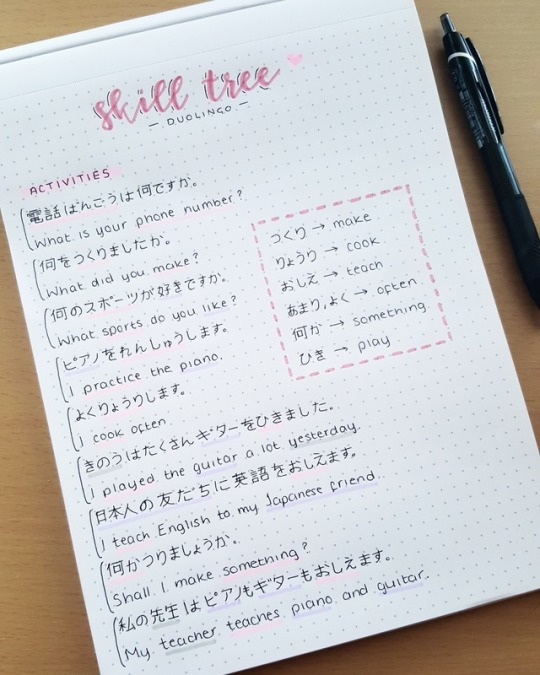 skill tree
— DUOLINGO —
ACTIVITIES
電話ばんごうは何ですか。
What is your phone number?
何をつくりましたか。
What did you make?
何のスポーツが好きですか。
What sports do you like?
ピアノをれんしゅうします。
I practice the piano.
よくりょうりします。
I cook often
きのうはたくさんギターをひきました。
I played the guitar a lot yesterday.
日本人の友だちに英語をおしえます。
I teach English to my Japanese friend.
何かつりましょうか。
Shall I make something?
私の先生はピアノもギターもおしえます。
My teacher teaches piano and guitar.
つくり → make
りょうり → cook
おしえ → teach
あまり,よく → often
何か → something
ひき → play